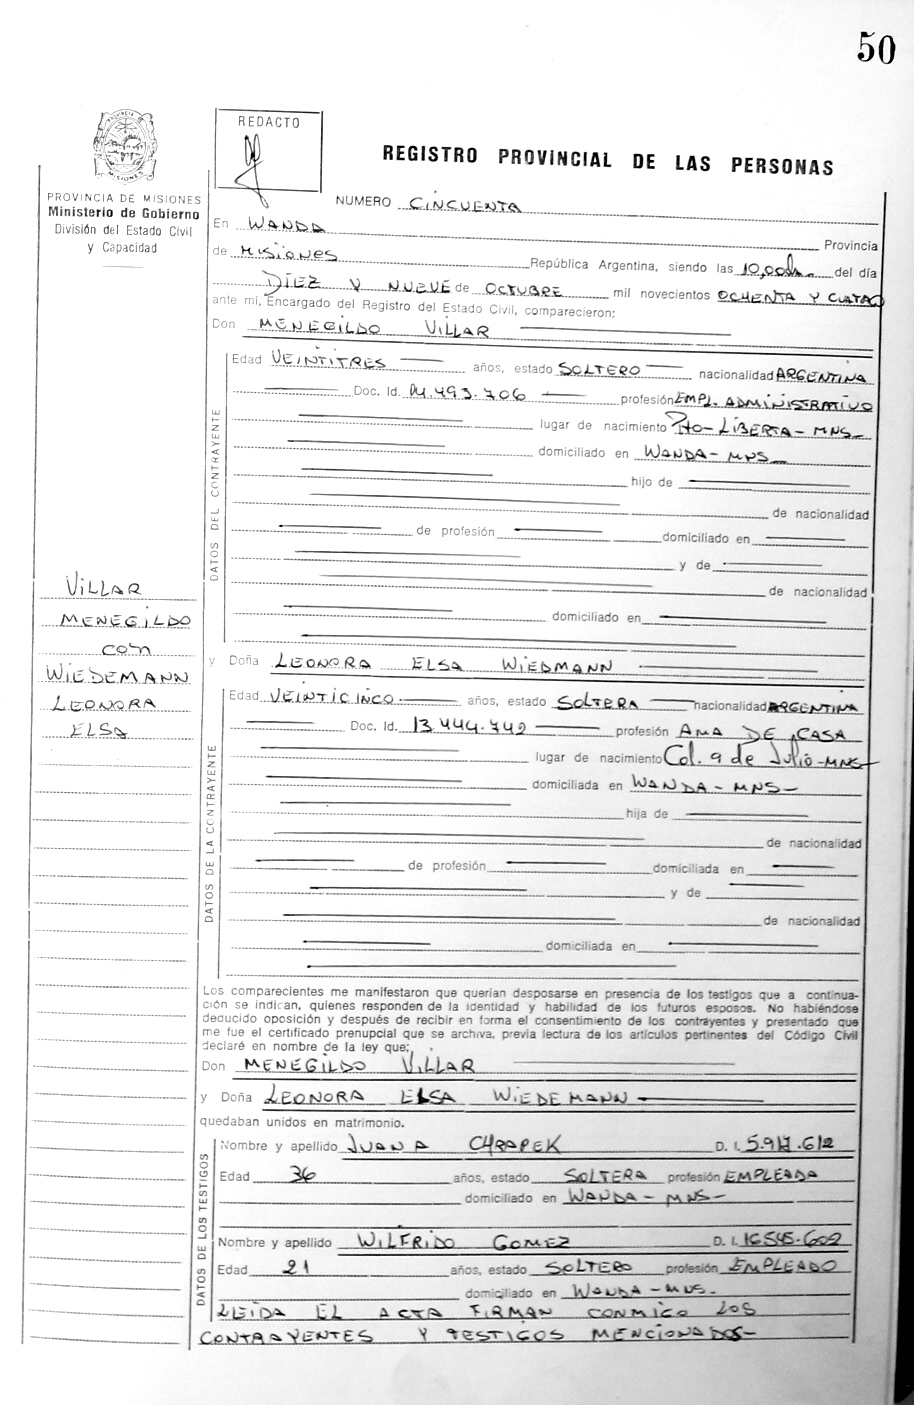 50
REDACTO
REGISTRO PROVINCIAL DE LAS PERSONAS
PROVINCIA DE MISIONES
Ministerio de Gobierno
División del Estado Civil
y Capacidad
NUMERO CINCUENTA
En WANDA Provincia
de MISIONES República Argentina, siendo las 10,00 del día
DIEZ Y NUEVE de OCTUBRE mil novecientos OCHENTA Y CUATRO
ante mí, Encargado del Registro del Estado Civil, comparecieron:
Don MENEGILDO VILLAR
DATOS DEL CONTRAYENTE
Edad VEINTITRES años, estado SOLTERO nacionalidad ARGENTINA
Doc. Id. 14.493.706 profesión EMPL. ADMINISTRATIVO
lugar de nacimiento Pto- LIBERTA- MNS-
domiciliado en WANDA- MNS-
hijo de
de nacionalidad
de profesión domiciliado en
y de
de nacionalidad
domiciliado en
VILLAR
MENEGILDO
CON
WIEDEMANN
LEONORA
ELSA
y Doña LEONORA ELSA WIEDMANN
DATOS DE LA CONTRAYENTE
Edad VEINTICINCO años, estado SOLTERA nacionalidad ARGENTINA
Doc. Id. 13.444.749 profesión AMA DE CASA
lugar de nacimiento Col. 9 de Julio-MNS-
domiciliada en WANDA- MNS-
hija de
de nacionalidad
de profesión domiciliada en
y de
de nacionalidad
domiciliada en
Los comparecientes me manifestaron que querían desposarse en presencia de los testigos que a continua-
ción se indican, quienes responden de la identidad y habilidad de los futuros esposos. No habiéndose
deducido oposición y después de recibir en forma el consentimiento de los contrayentes y presentado que
me fue el certificado prenupcial que se archiva, previa lectura de los artículos pertinentes del Código Civil
declaré en nombre de la ley que;
Don MENEGILDO VILLAR
y Doña LEONORA ELSA WIEDEMANN
quedaban unidos en matrimonio.
DATOS DE LOS TESTIGOS
Nombre y apellido JUANA CHRAPEK D. I. 5.917.612
Edad 36 años, estado SOLTERA profesión EMPLEADA
domiciliado en WANDA- MNS-
Nombre y apellido WILFRIDO GOMEZ D. I. 16.545.602
Edad 21 años, estado SOLTERO profesión EMPLEADO
domiciliado en WANDA-MNS-
LEIDA EL ACTA FIRMAN CONMIGO LOS
CONTRAYENTES Y TESTIGOS MENCIONADOS-